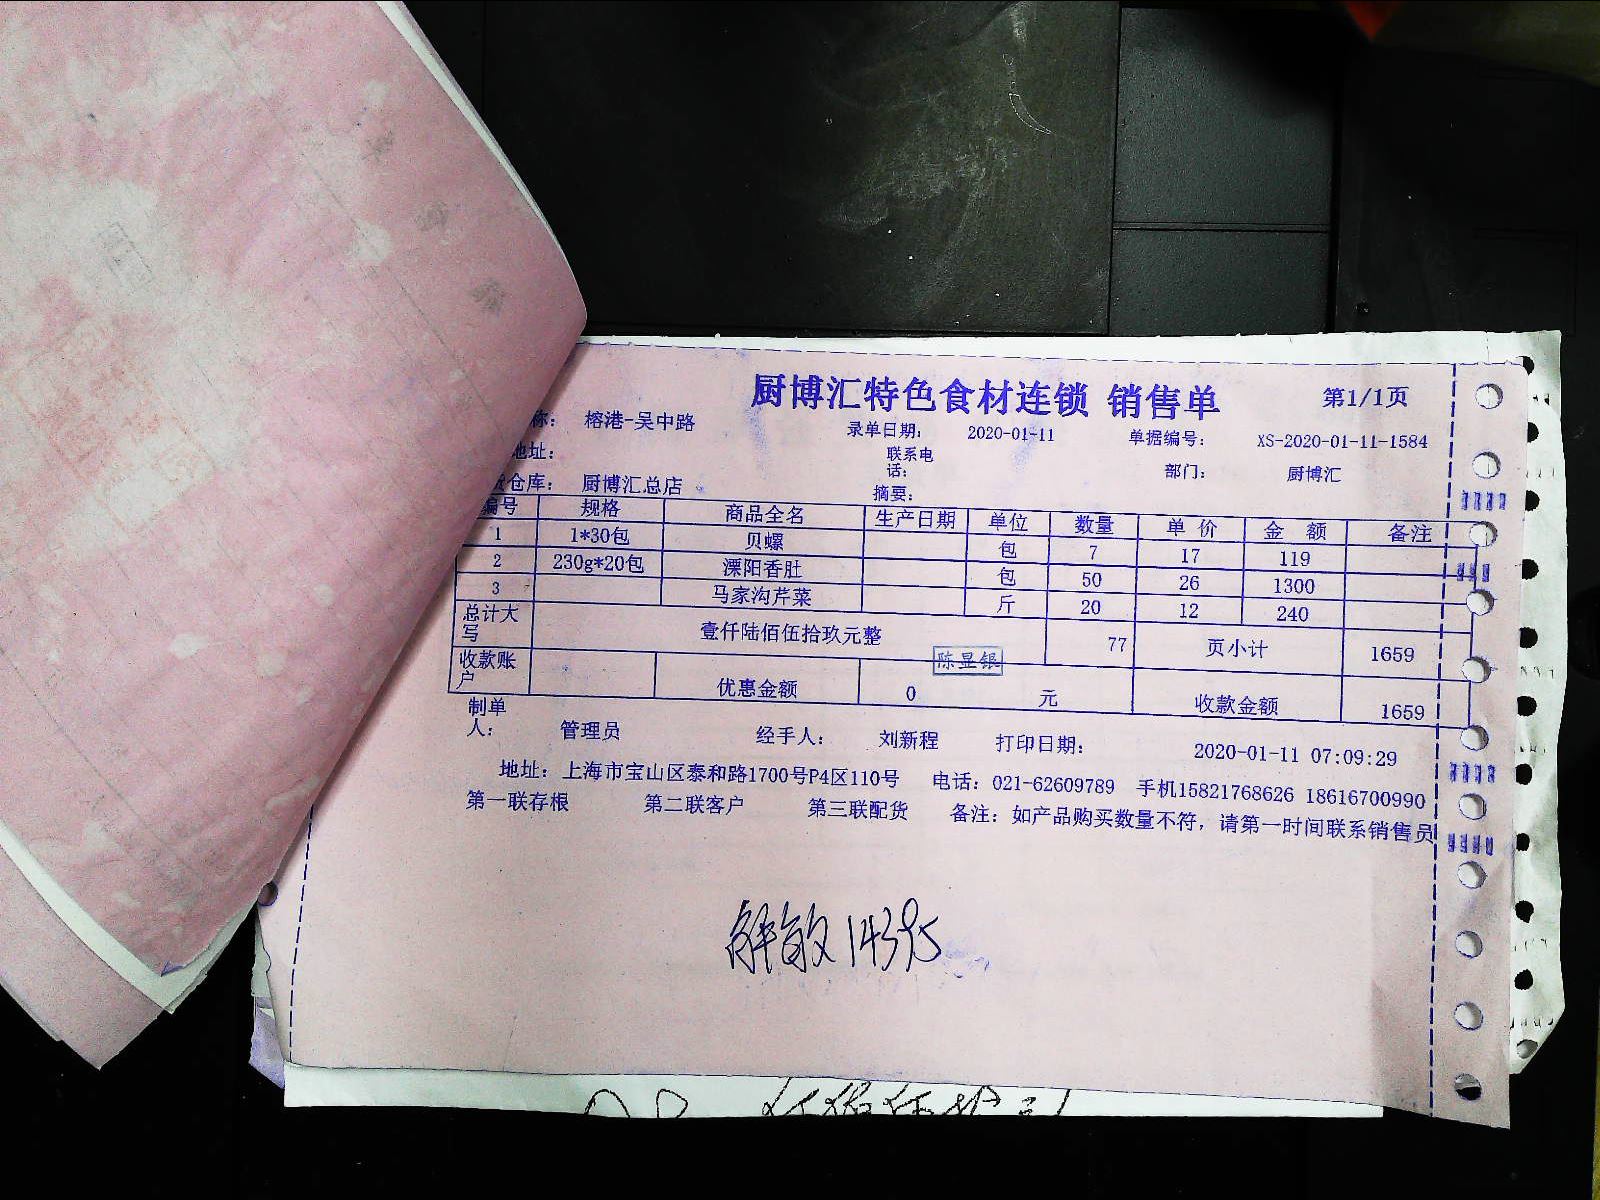 厨博汇特色食材连锁 销售单
第1/1页
称： 榕港-吴中路 录单日期： 2020-01-11 单据编号： XS-2020-01-11-1584
地址： 联系电话： 部门： 厨博汇
货仓库： 厨博汇总店 摘要：
编号 规格 商品全名 生产日期 单位 数量 单 价 金 额 备注
1 1*30包 贝螺 包 7 17 119
2 230g*20包 溧阳香肚 包 50 26 1300
3 马家沟芹菜 斤 20 12 240
总计大写 壹仟陆佰伍拾玖元整 77 页小计 1659
陈显银
收款账户 优惠金额 0 元 收款金额 1659
制单人： 管理员 经手人： 刘新程 打印日期： 2020-01-11 07:09:29
地址：上海市宝山区泰和路1700号P4区110号 电话：021-62609789 手机15821768626 18616700990
第一联存根 第二联客户 第三联配货 备注：如产品购买数量不符，请第一时间联系销售员
解敏 14395